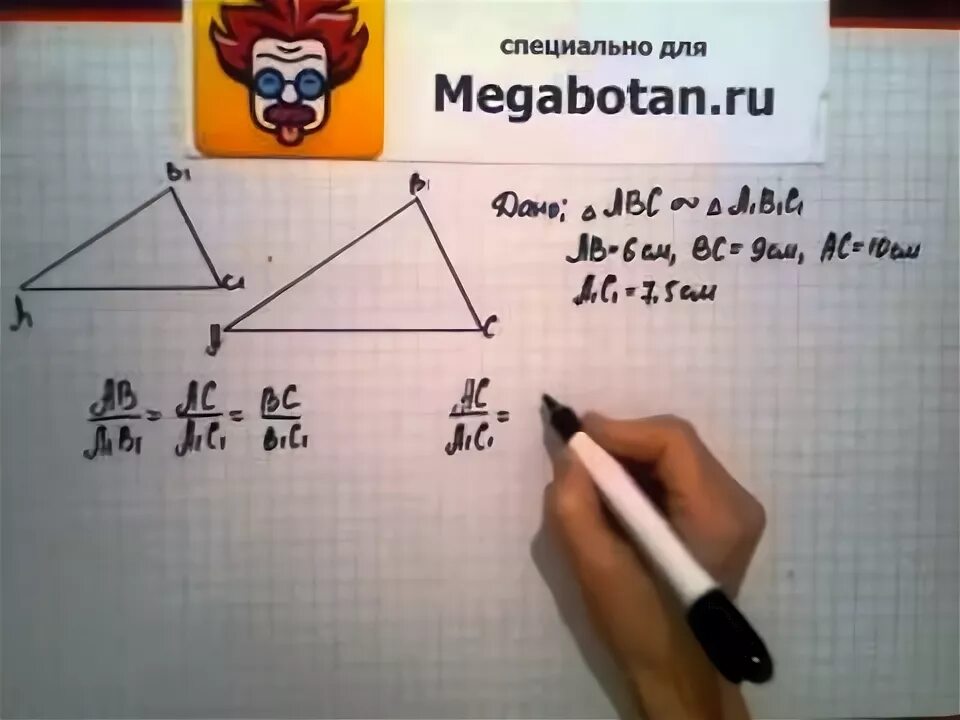 специально для
Megabotan.ru
B₁
C₁
B₁
C
Дано: △ABC ∾ △A₁B₁C₁
AB=6см, BC=9см, AC=10см
A₁C₁=7,5см
AB/A₁B₁ = AC/A₁C₁ = BC/B₁C₁
AC/A₁C₁ =